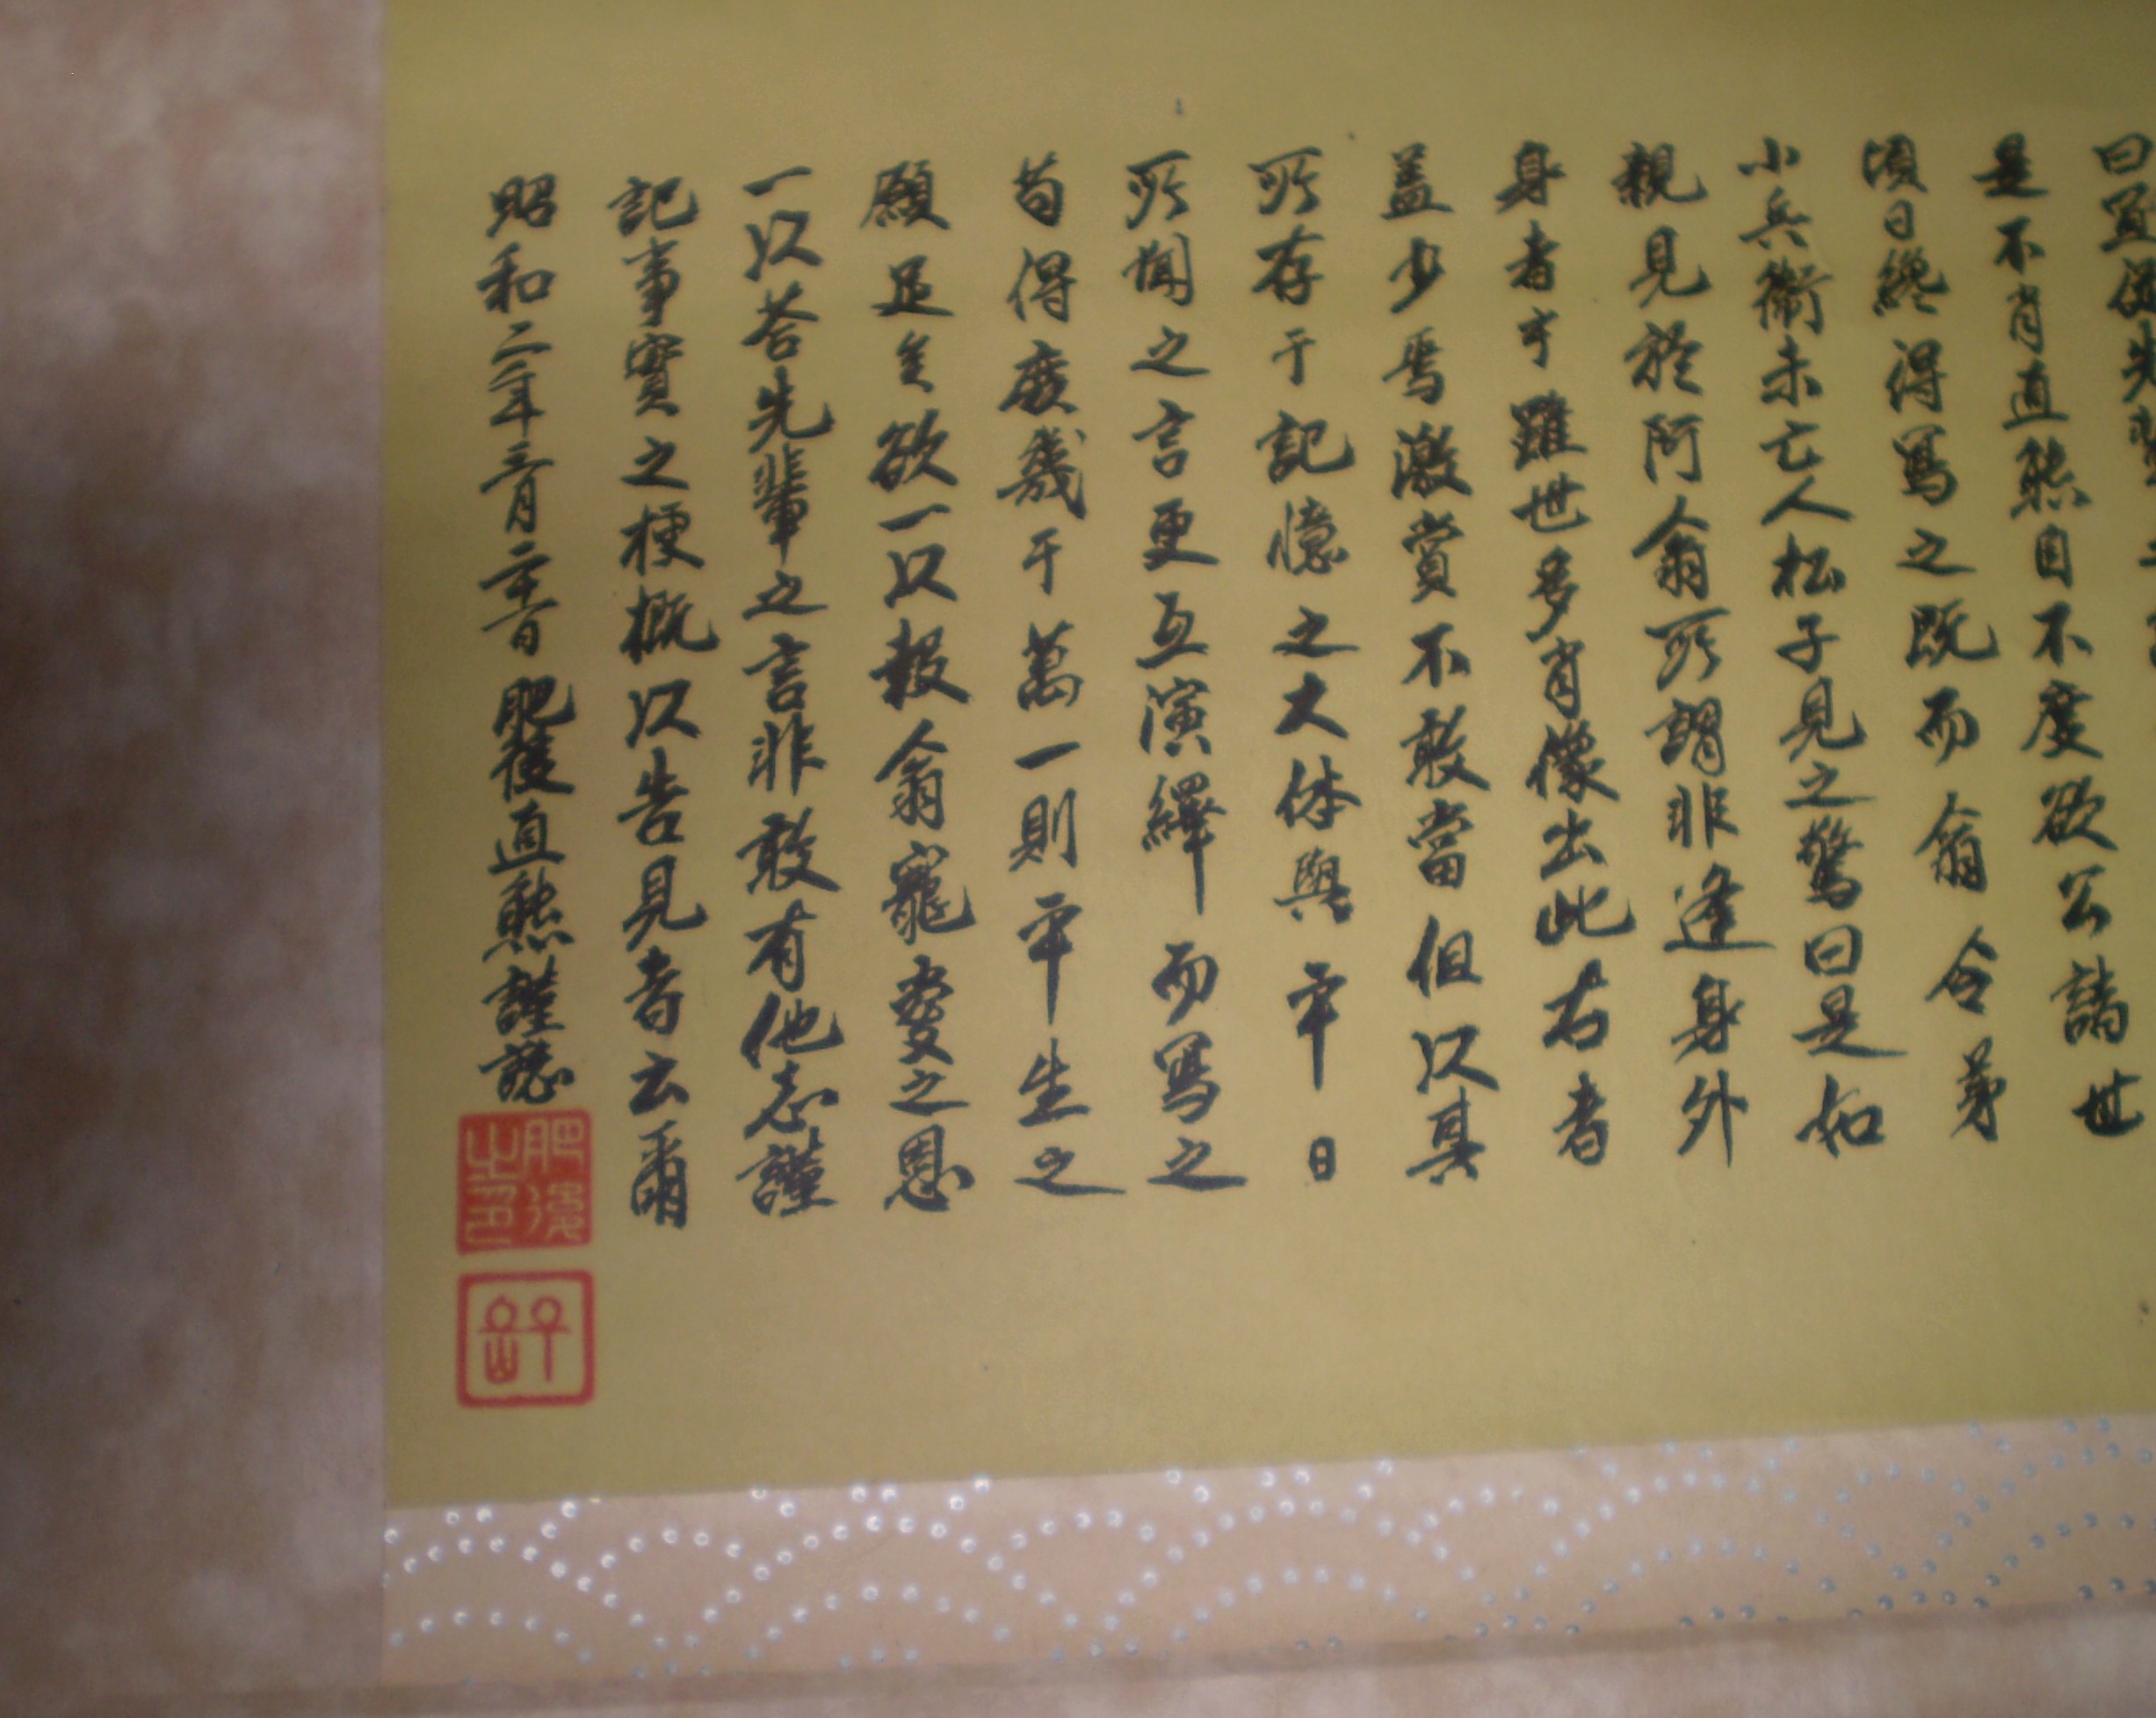 是不肖直熊自不度欲公諸世
頃日纔得寫之既而翁令弟
小兵衛未亡人松子見之驚曰是如
親見於阿翁所謂非逢身外
身者乎雖世多肖像出此右者
盖少焉激賞不敢當但以其
所存于記憶之大体與平日
所聞之言更互演繹而寫之
苟得庶幾于萬一則平生之
願足矣欲一以報翁寵愛之恩
一以答先輩之言非敢有他志謹
記事實之梗概以告見者云爾
昭和二年三月二十一日 肥後直熊謹誌
肥後之印